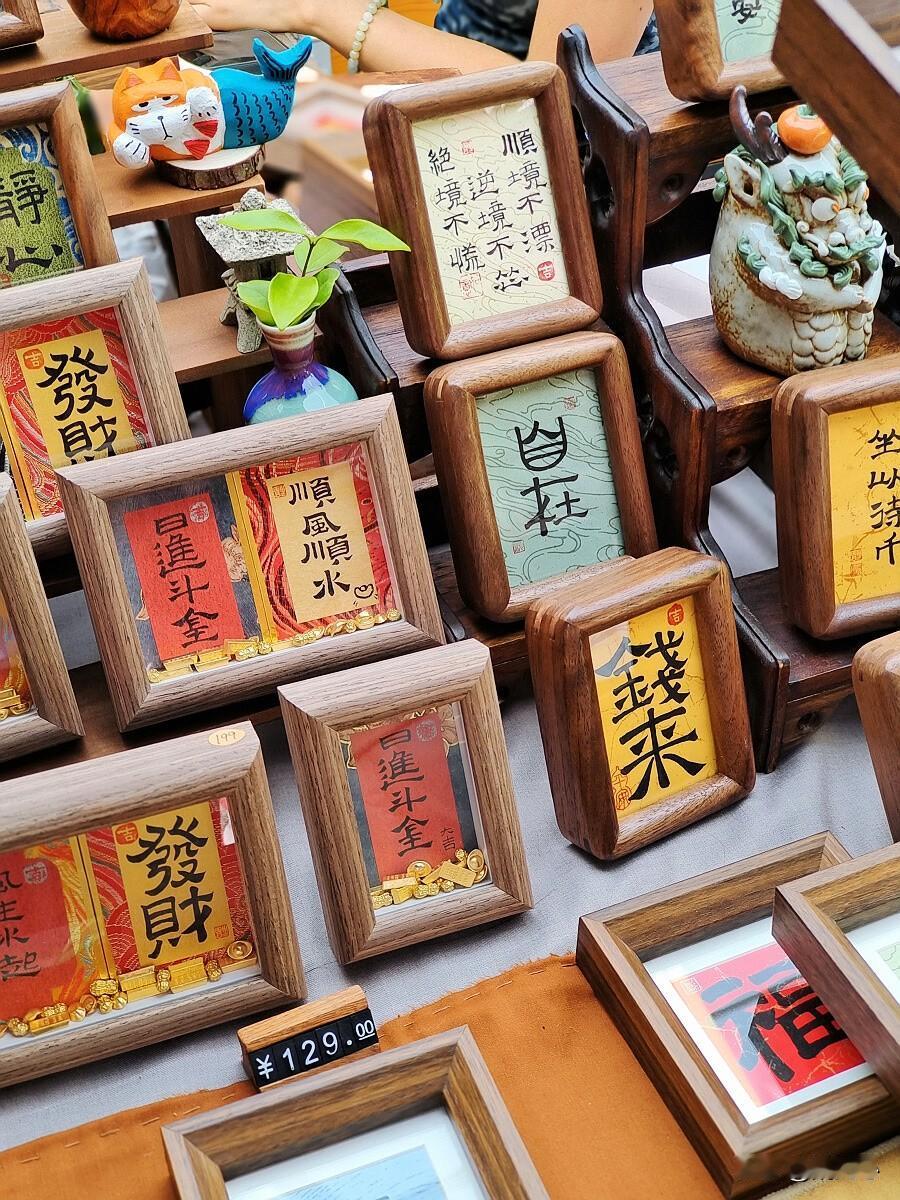 靜心
順境不漂
逆境不怂
絕境不慌
吉
發財
日進斗金
順風順水
自在
坐以待币
吉
錢來
199
日進斗金
大吉
生水起
吉
發財
¥129.00
福